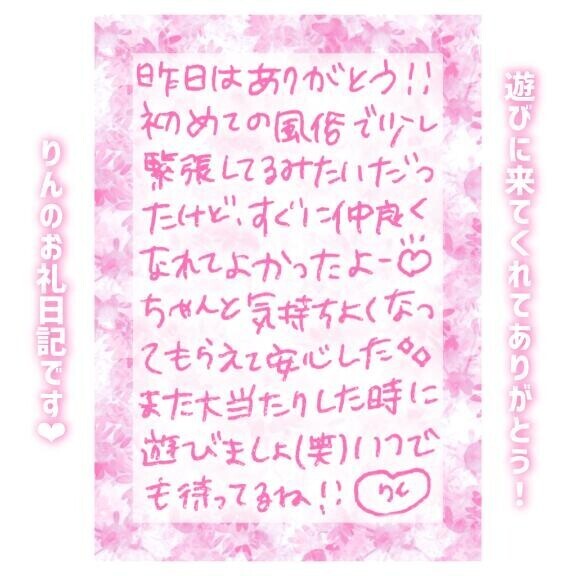 遊びに来てくれてありがとう!
昨日はありがとう!!
初めての風俗で少し
緊張してるみたいだっ
たけど、すぐに仲良く
なれてよかったよー♡
ちゃんと気持ちよくなっ
てもらえて安心した
また大当たりした時に
遊びましょ(笑)いつで
も待ってるね!!
りん
りんのお礼日記です❤